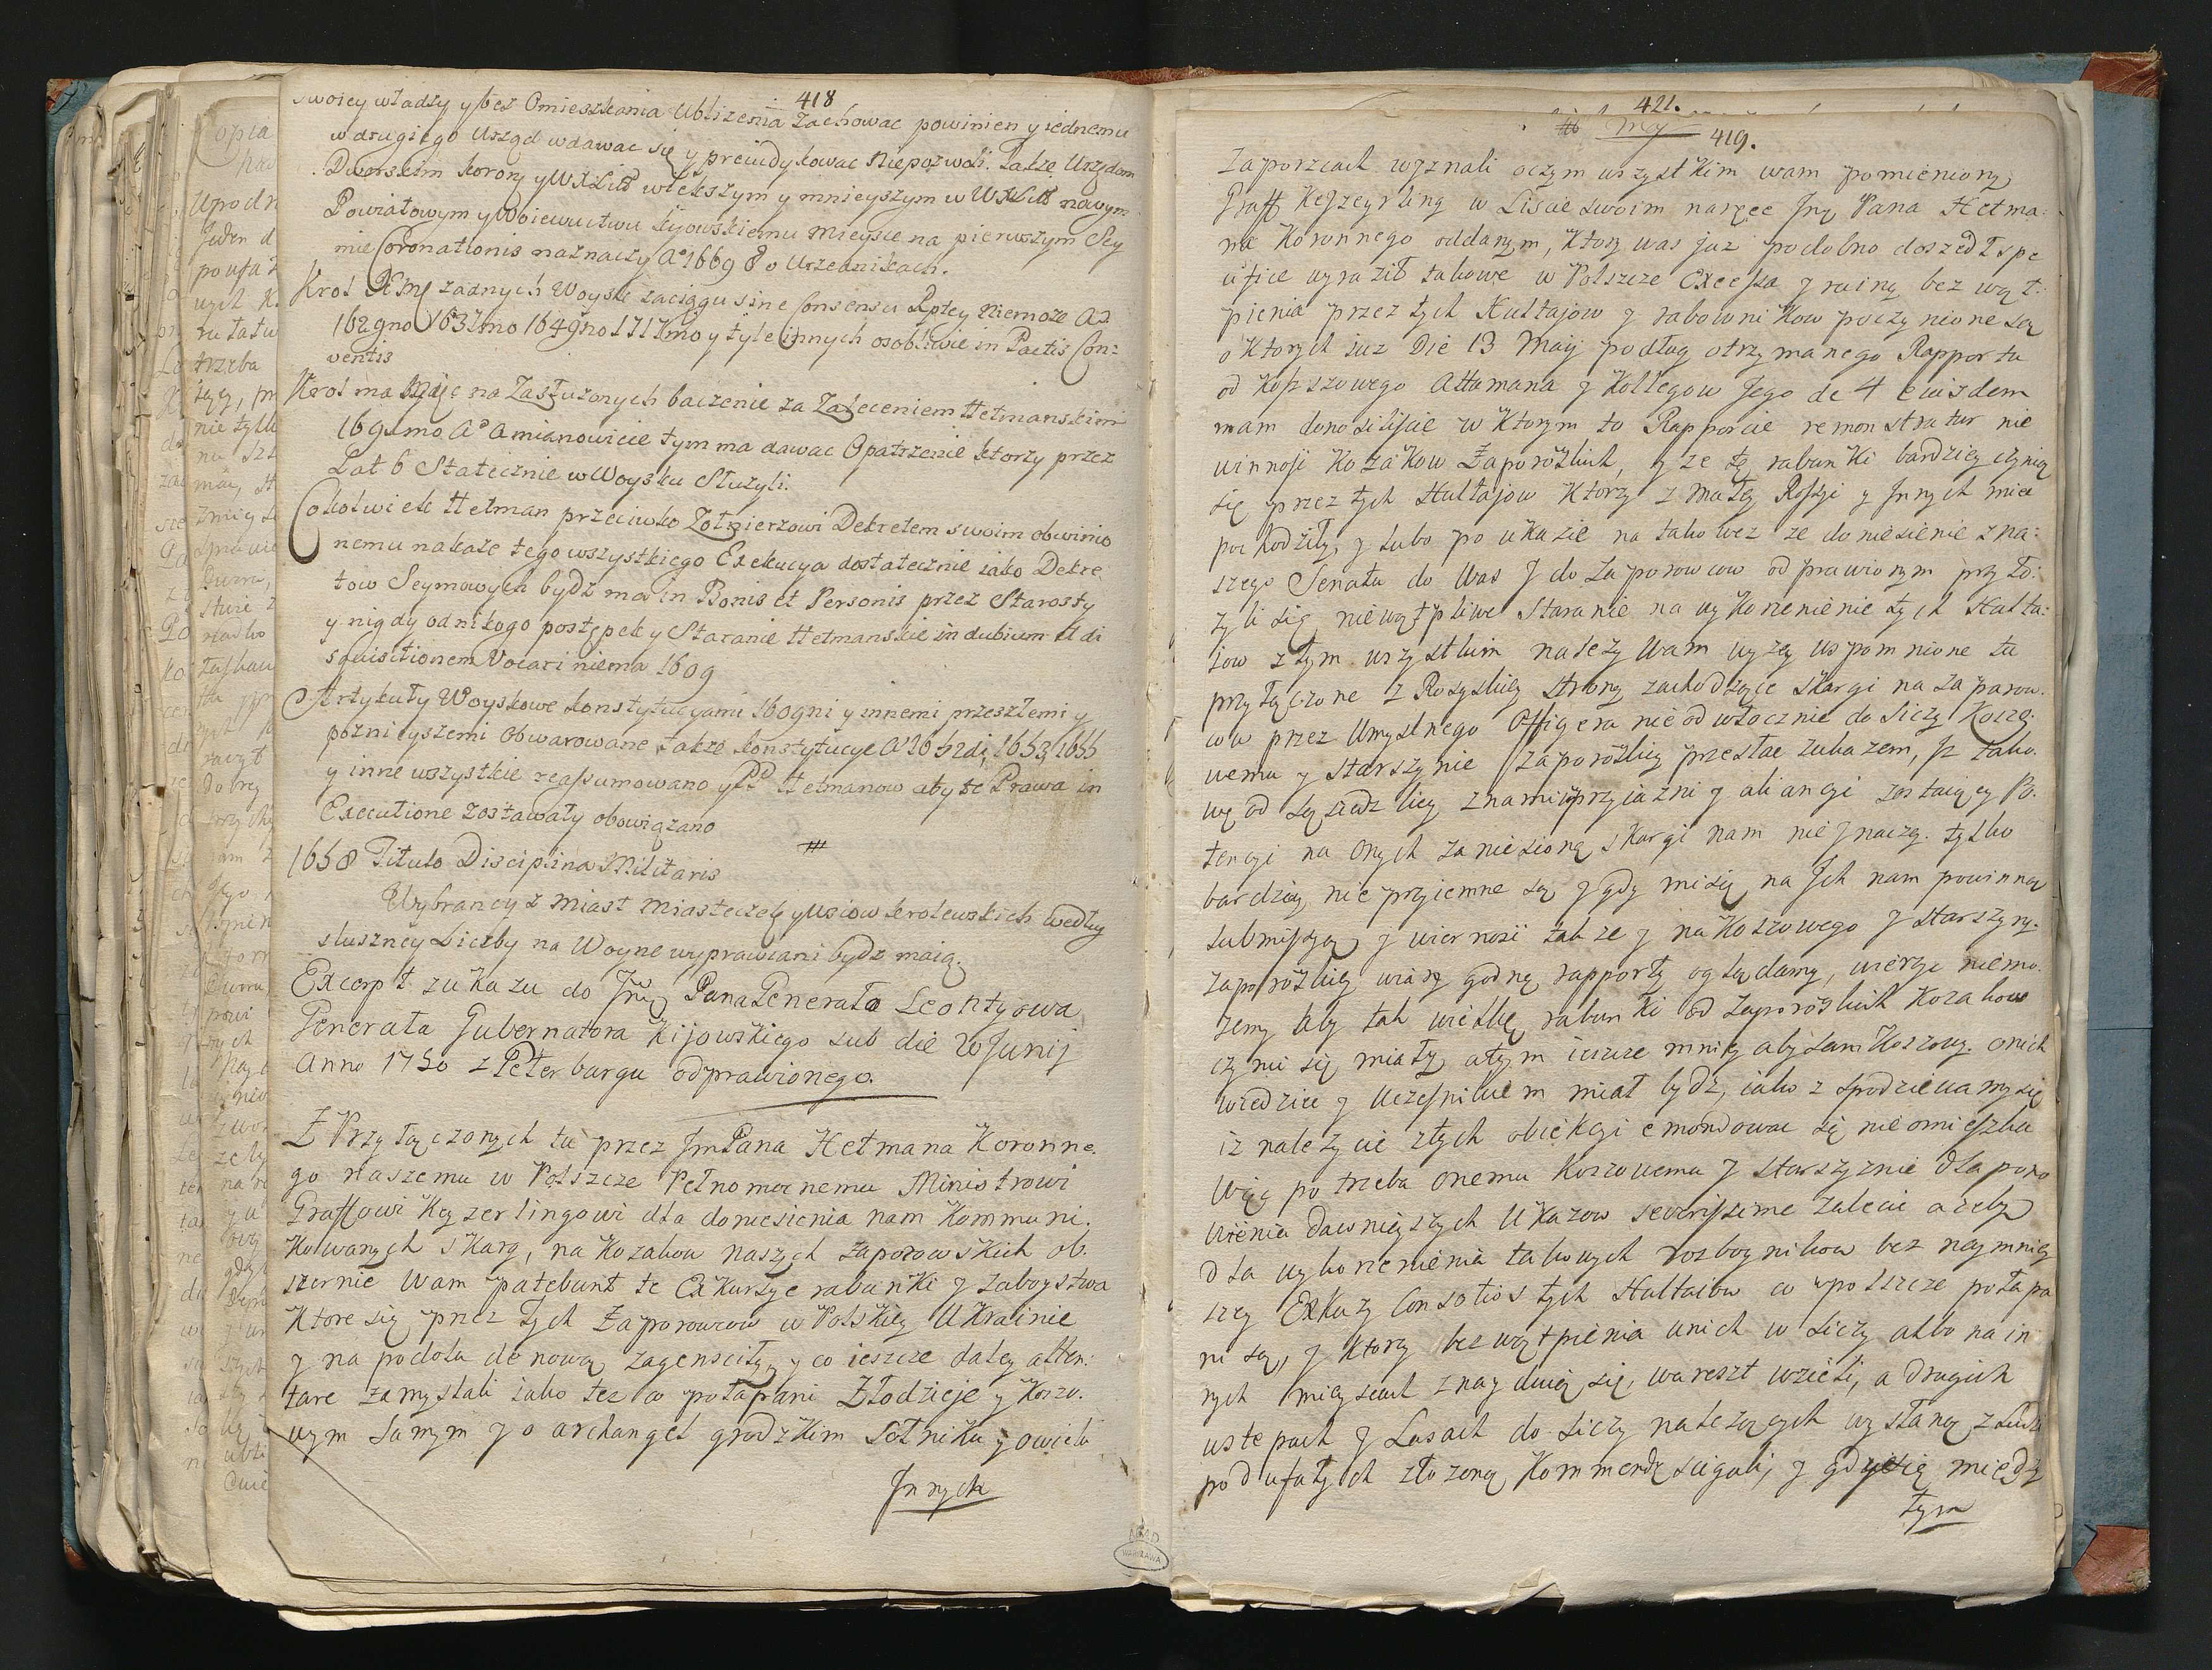 418
swoiey władzy y bez Omieszkania Ubliżenia Zachować powinien y iednemu
w drugiego Urząd wdawać się y preiudykować Niepozwoli. Także Urzędom
Dworskim korony y WXLitt większym y mnieyszym w WXLitt nowym
Powiatowym y Woiewuctwu kijowskiemu Mieysce na pierwszym Sey
mie Coronationis naznaczy A° 1669 8 o Urzednikach.
Krol JEMć żadnych Woysk zaciągu sine Consensu Rptey Niemoże A°
1629no 1632mo 1649no 1717mo y tyle innych osobliwie in Pactis Con:
ventis
Krol ma Mieć na Zasłużonych baczenie za Zaleceniem Hetmanskim
1691mo A° Amianowicie tym ma dawać Opatrzenie ktorzy przez
Lat 6 Statecznie w Woysku Służyli.
Cokolwiek Hetman przeciwko Zołnierzowi Dekretem swoim obwinio
nemu nakaże tego wszystkiego Exekucya dostatecznie iako Dekre
tow Seymowych bydź ma in Bonis et Personis przez Starosty
y nigdy od nikogo postępek y Staranie Hetmanskie in dubium et di
squisitionem Vocari niema 1609
Artykuły Woyskowe konstytucyami 1609ni y innemi przeszłemi y
poznieyszemi obwarowane także konstytucye A° 1652di, 1653, 1655
y inne wszystkie reassumowano y PP Hetmanow aby te Prawa in
Executione zostawały obowiązano
1658 Titulo Disciplina Militaris
Wybrancy z Miast Miasteczek y wsiow krolewskich według
słuszney Liczby na Woynę wyprawiani bydź maią.
Excerpt z ukazu do Jmć Pana Generała Leontyowa
Generała Gubernatora Kijowskiego sub die 20 Junij
Anno 1750 z Peterburgu odprawionego.
Z Przyłączonych tu przez Jm Pana Hetmana Koronne.
go naszemu w Polszcze Pełnomocnemu Ministrowi
Graffowi Keyzerlingowi dla doniesienia nam Kommuni.
kowanych skarg, na Kozakow naszych zaporowskich ob.
szernie Wam patebunt te Exkursye rabunki y zaboystwa
Ktore się przez tych Zaporowcow w Polskiey Ukrainie
y na podolu de novo zagenscily, y co ieszcze daley atten:
tare zamyslali iako też co połapani Złodzieje y Koszo.
wym samym y o archangel grodzkim Sotniku y o wielu
Innych
421.
419.
Zaporzcach wyznali o czym wszystkim wam pomieniony
Graff Keyzeyrling w Liscie swoim na ręce Jmć Pana Hetma:
na Koronnego oddanym, ktory was już podobno doszedł spe
cifice wyraził takowe w Polszcze Excessa y ruiny bez wąt:
pienia przez tych Hultajow y rabownikow poczynione są
o ktorych iuż Die 13 Maij podług otrzymanego Rapportu
od Koszowego Attamana y Kollegow Jego de 4 eiusdem
nam donosiliscie w ktorym to Rapporcie remonstratur nie
winnosc Kozakow Zaporozkich, y że te rabunki bardziey czynią
się przez tych Hultajow ktorzy z Małey Rossyi y Innych miec
pochodzily, y lubo po ukazie na takowez ze doniesienie z na:
szego Senatu do Was y do Zaporowcow odprawionym przyło:
zyli się niewątpliwe Staranie na wykorzenienie tych Hulta:
iow z tym wszystkim należy Wam wyżey wspomnione tu
przyłączone z Rosyskiey strony zachodzące skargi na Zaporow.
cow przez Umyslnego Officyera nieodwłocznie do Siczy Koszo.
wemu y starszynie zaporozkiey przesłać z ukazem, Iż tako.
we od sąsiedzkiey z nami w przyiazni y aliancyi zostaiącey Po.
tencyi na onych zaniesione skargi nam nie Inaczey tylko
bardziey nie przyiemne są y gdy my się na Ich nam powinną
submissyą y wiernosć także y na Koszowego y starszyny.
zaporozkiey wiary godne rapporty oglądamy, wierzyc niemo.
żemy aby tak wielkie rabunki od Zaporozkich Kozakow
czynic się miały, a tym ieszcze mniey aby sam Koszowy. o nich
wiedzieć y Uczesnikiem miał bydź, iako z spodziewamy się
iż należycie z tych obiekcyi emondować się nie omieszka
Więc potrzeba onemu Koszowemu y starszyznie dla pono
wienia dawnieyszych Ukazow severissime zalecic ażeby
dla wykorzenienia takowych rozboynikow bez naymniey
szey Exkuzy Consotios tych Hultaiow co w polszcze połapa
ni są, y ktorzy bez wątpienia u nich w Siczy albo na in
nych mieyscach znayduią się, w areszt wzieli, a drugich
w stepach y Lasach do Siczy należących wysłaną z Ludzi
poufałych złożoną Kommendę scigali, y gdyżeię między
tym